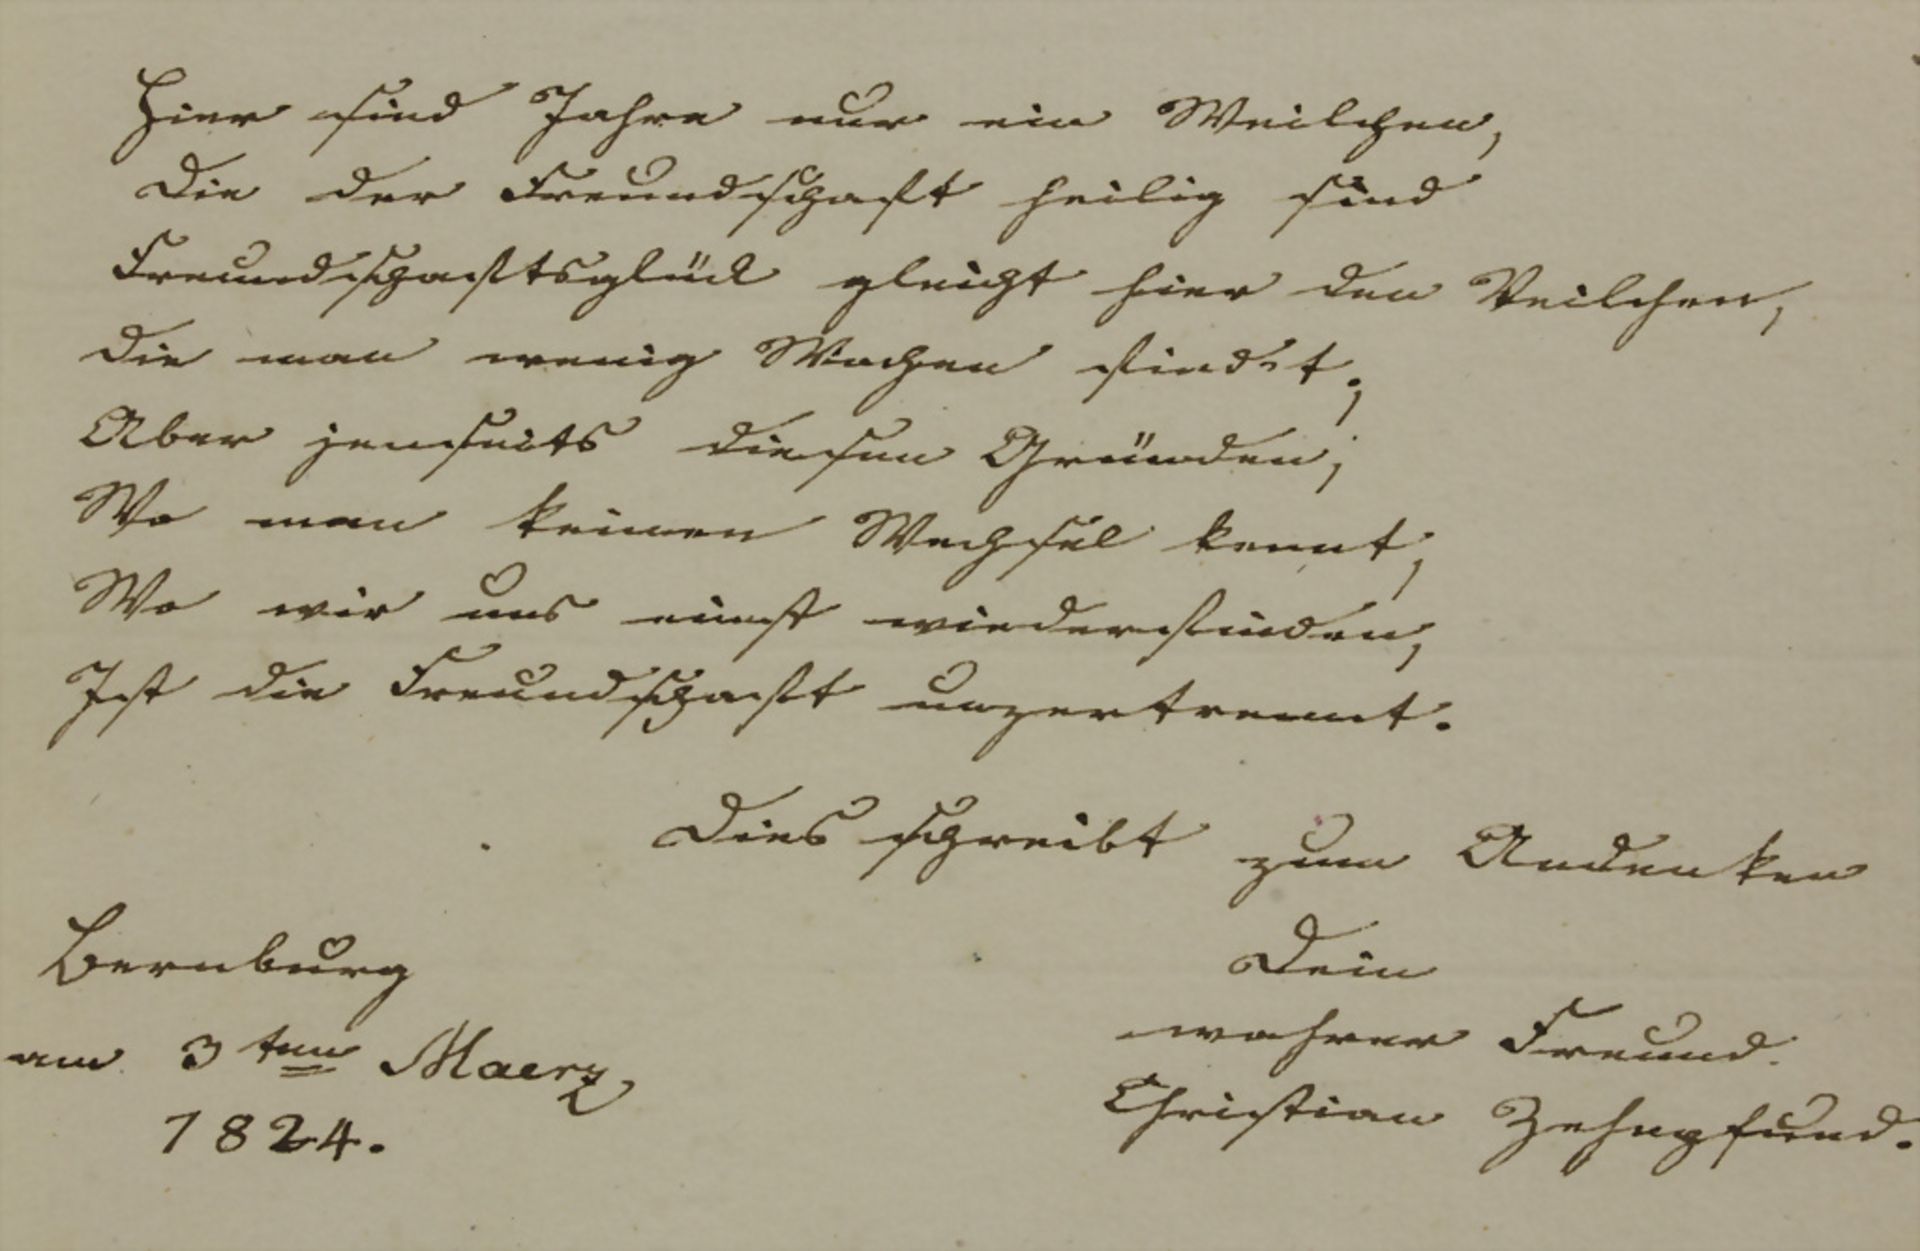 Hier sind Jahre nur ein Weilchen,
Die der Freundschaft heilig sind
Freundschaftsglück gleicht hier den Veilchen,
Die man wenig Wochen findet;
Aber jenseits diesen Gründen;
Wo man keinen Wechsel kennt;
Wo wir uns einst wiederfinden,
Ist die Freundschaft unzertrennt.
Dies schreibt zum Andenken
Dein
wahrer Freund.
Christian Zehnpfund.
Bernburg
am 3ten Maerz
1824.